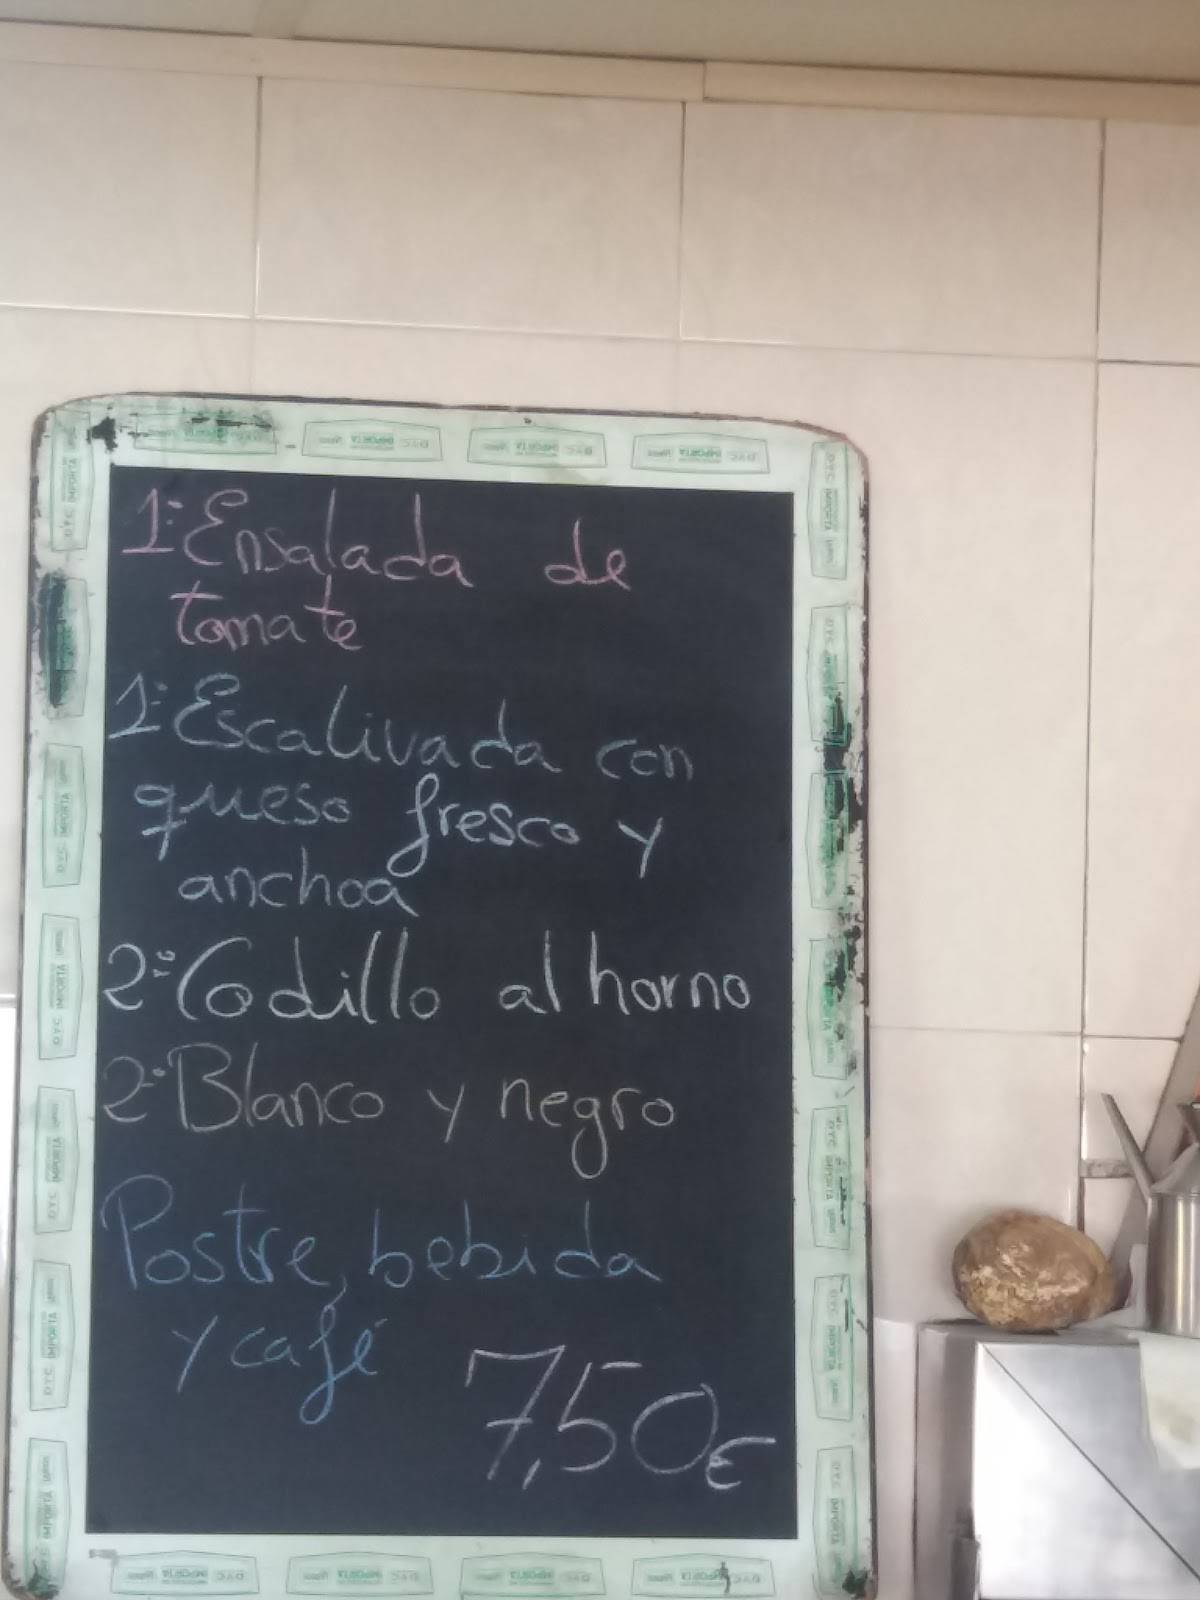 1º Ensalada de
tomate
1º Escalivada con
queso fresco y
anchoa
2º Codillo al horno
2º Blanco y negro
Postre, bebida
y café
7,50€
DYC IMPORTA